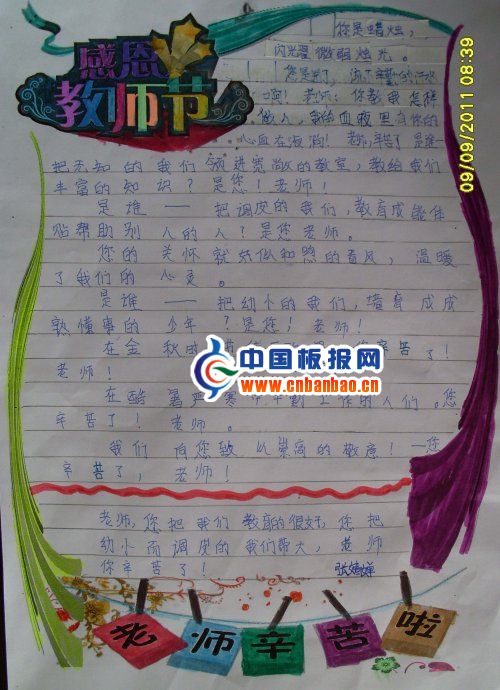 感恩
教师节
你是蜡烛，
闪光耀微弱烛光。
09/09/2011 08:39
啊！老师：你教我怎样
做人，我的血液里有你的
心血在流淌！老师，辛苦了是谁一
把无知的我们领进宽敞的教室，教给我们
丰富的知识？是您！老师！
是谁——把调皮的我们，教育成能体
贴帮助别人的人？是您老师。
您的关怀就好似和煦的春风，温暖
了我们的心灵。
是谁——把幼小的我们，培育成成
熟懂事的少年？是您！老师！
在金秋时 辛苦了！
老师！
在酷暑严寒中辛勤工作的人们。您
辛苦了！老师。
我们向您致以崇高的敬意！一您
辛苦了，老师！
中国板报网
www.cnbanbao.cn
老师，您把我们教育的很好，您把
幼小而调皮的我们带大，老师
你辛苦了！
老师辛苦啦